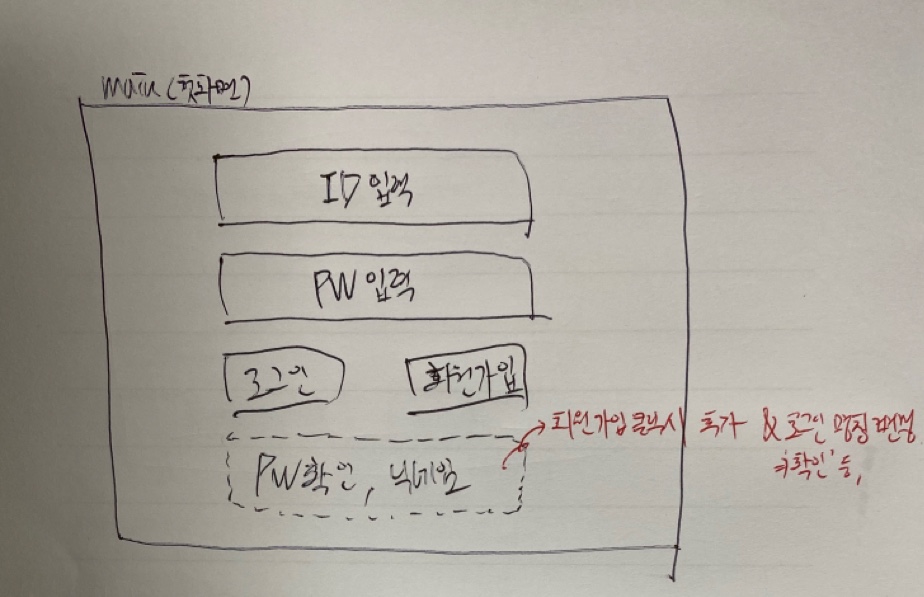 main (첫화면)
ID 입력
PW 입력
로그인
회원가입
PW확인, 닉네임
회원가입 클릭시 추가 & 로그인 명칭 변경
'확인' 등,